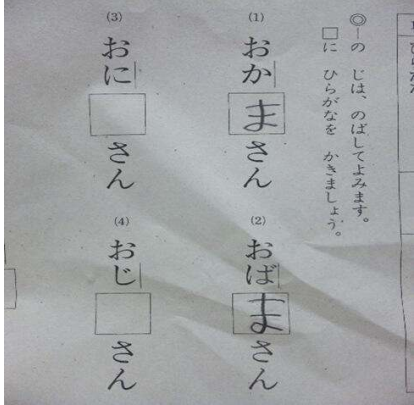 ◎―の じは、のばしてよみます。
□に ひらがなを かきましょう。
(1)
おかまさん
(2)
おばまさん
(3)
おに□さん
(4)
おじ□さん